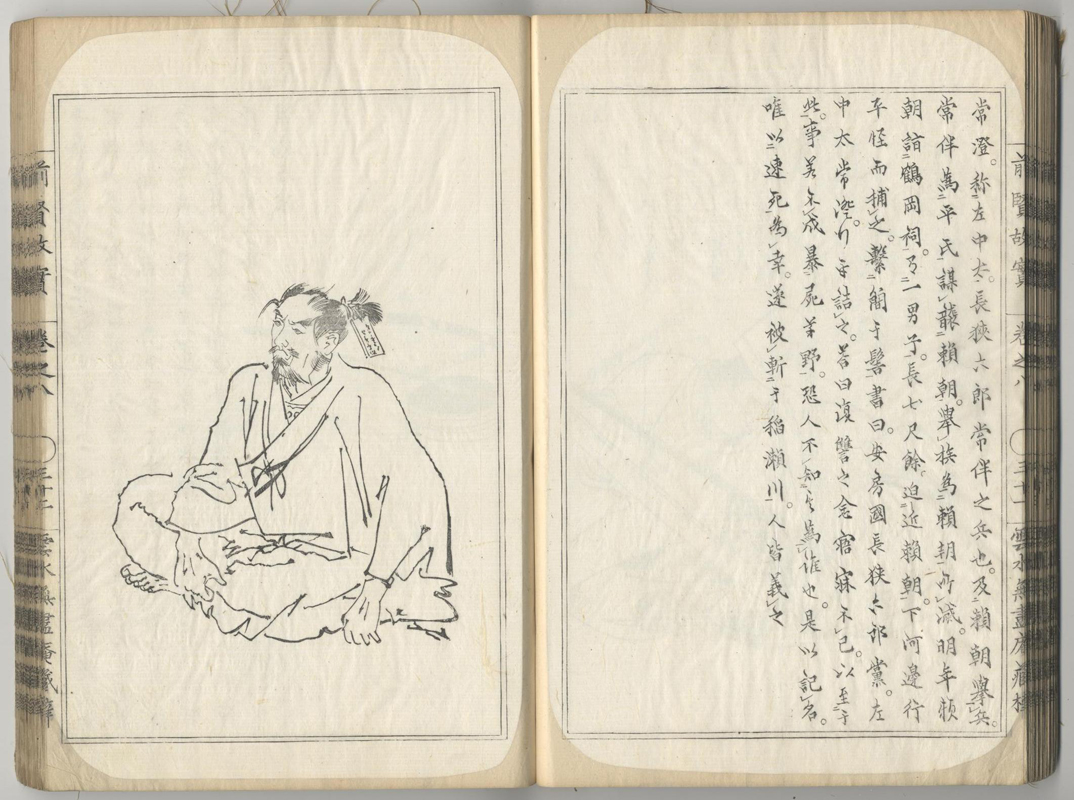 常澄。称左中太。長狹六郎常伴之兵也。及賴朝擧兵。
常伴為平氏謀襲賴朝。擧族為賴朝所滅。明年
朝詣鶴岡祠。有一男子。長七尺餘。迫近賴朝。下河邊行
平怪而捕之。繫簡于髻書曰。安房國長狹六郎黨。左
中太常澄。行平詰之。答曰復讐之念寤寐不已。以至于
此。事若不成暴屍草野。恐人不知其為誰也。是以記名。
唯以速死為幸。遂被斬于稲瀬川。人皆義之
前賢故實
卷之八
三十一
雲水無盡庵藏梓
前賢故實
卷之八
三十二
雲水無盡庵藏梓